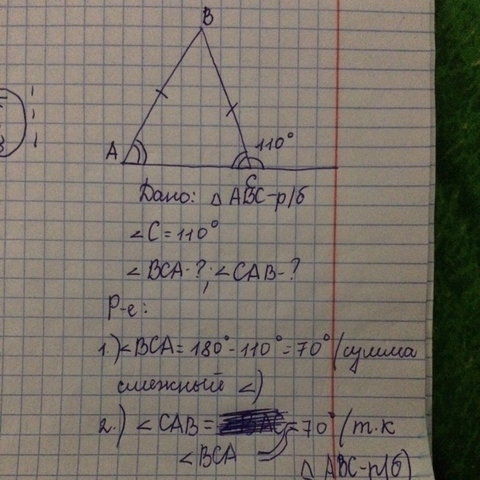 B
A
110°
C
Дано: △ ABC-р/б
∠C = 110°
∠BCA-?; ∠CAB-?
Р-е:
1.) ∠BCA = 180° - 110° = 70° (сумма
смежный ∠)
2.) ∠CAB = = 70° (т.к
∠BCA
△ ABC-р/б)